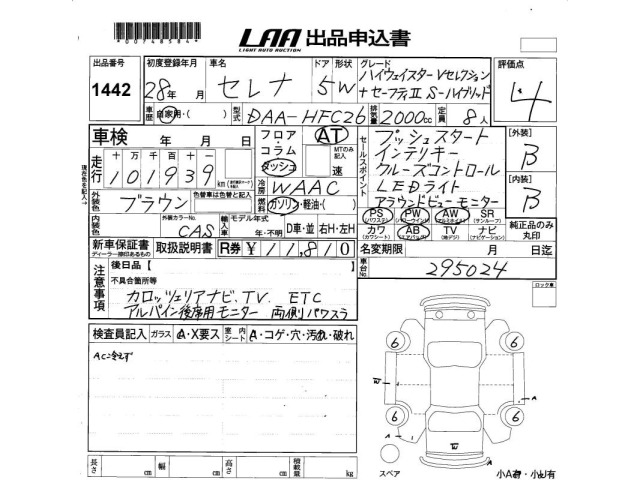 *00748584*
LAA 出品申込書
LIGHT AUTO AUCTION
出品番号 1442
初度登録年月 28年 月
車名 セレナ
ドア 形状 5W
グレード ハイウェイスターVセレクション
+セーフティⅡ S-ハイブリッド
評価点 4
車歴 自家用・( )
型式 DAA-HFC26
排気量 2000cc
定員 8人
車検 年 月 日
フロア・コラム・ダッシュ
AT
MTのみ記入 速
セールスポイント
プッシュスタート
インテリキー
クルーズコントロール
LEDライト
アラウンドビューモニター
【外装】 B
【内装】 B
走行 十万千百十
101939 km
現在走行を記入
冷房 WAAC
外装色 ブラウン
色替車は色替と記入
燃料 ガソリン・軽油・( )
PS (パワステ) PW (パワーウインド) AW (アルミホイル) SR (サンルーフ)
カワ (カワシート) AB (エアバッグ) TV (地デジ) ナビ (ナビゲーション)
純正品のみ丸印
内装色
外装カラーNo. CAS
輸入車 モデル年式 年・不明
D車・並 右H・左H
新車保証書
ディーラー捺印あるもの
取扱説明書
R券 ¥11,810
名変期限 月 日迄
車台No. 295024
注意事項
後日品【 】
不具合箇所等
カロッツェリアナビ、TV. ETC
アルパイン後席用モニター 両側パワスラ
ロック車
検査員記入 ガラス A・X要ス 室内シート A・コゲ・穴・汚れ・破れ
AC冷えず
6
6
6
6
W
W
A
A
A
スペア
長さ cm 幅 cm 高さ cm 積載量 kg
小A有・小U有